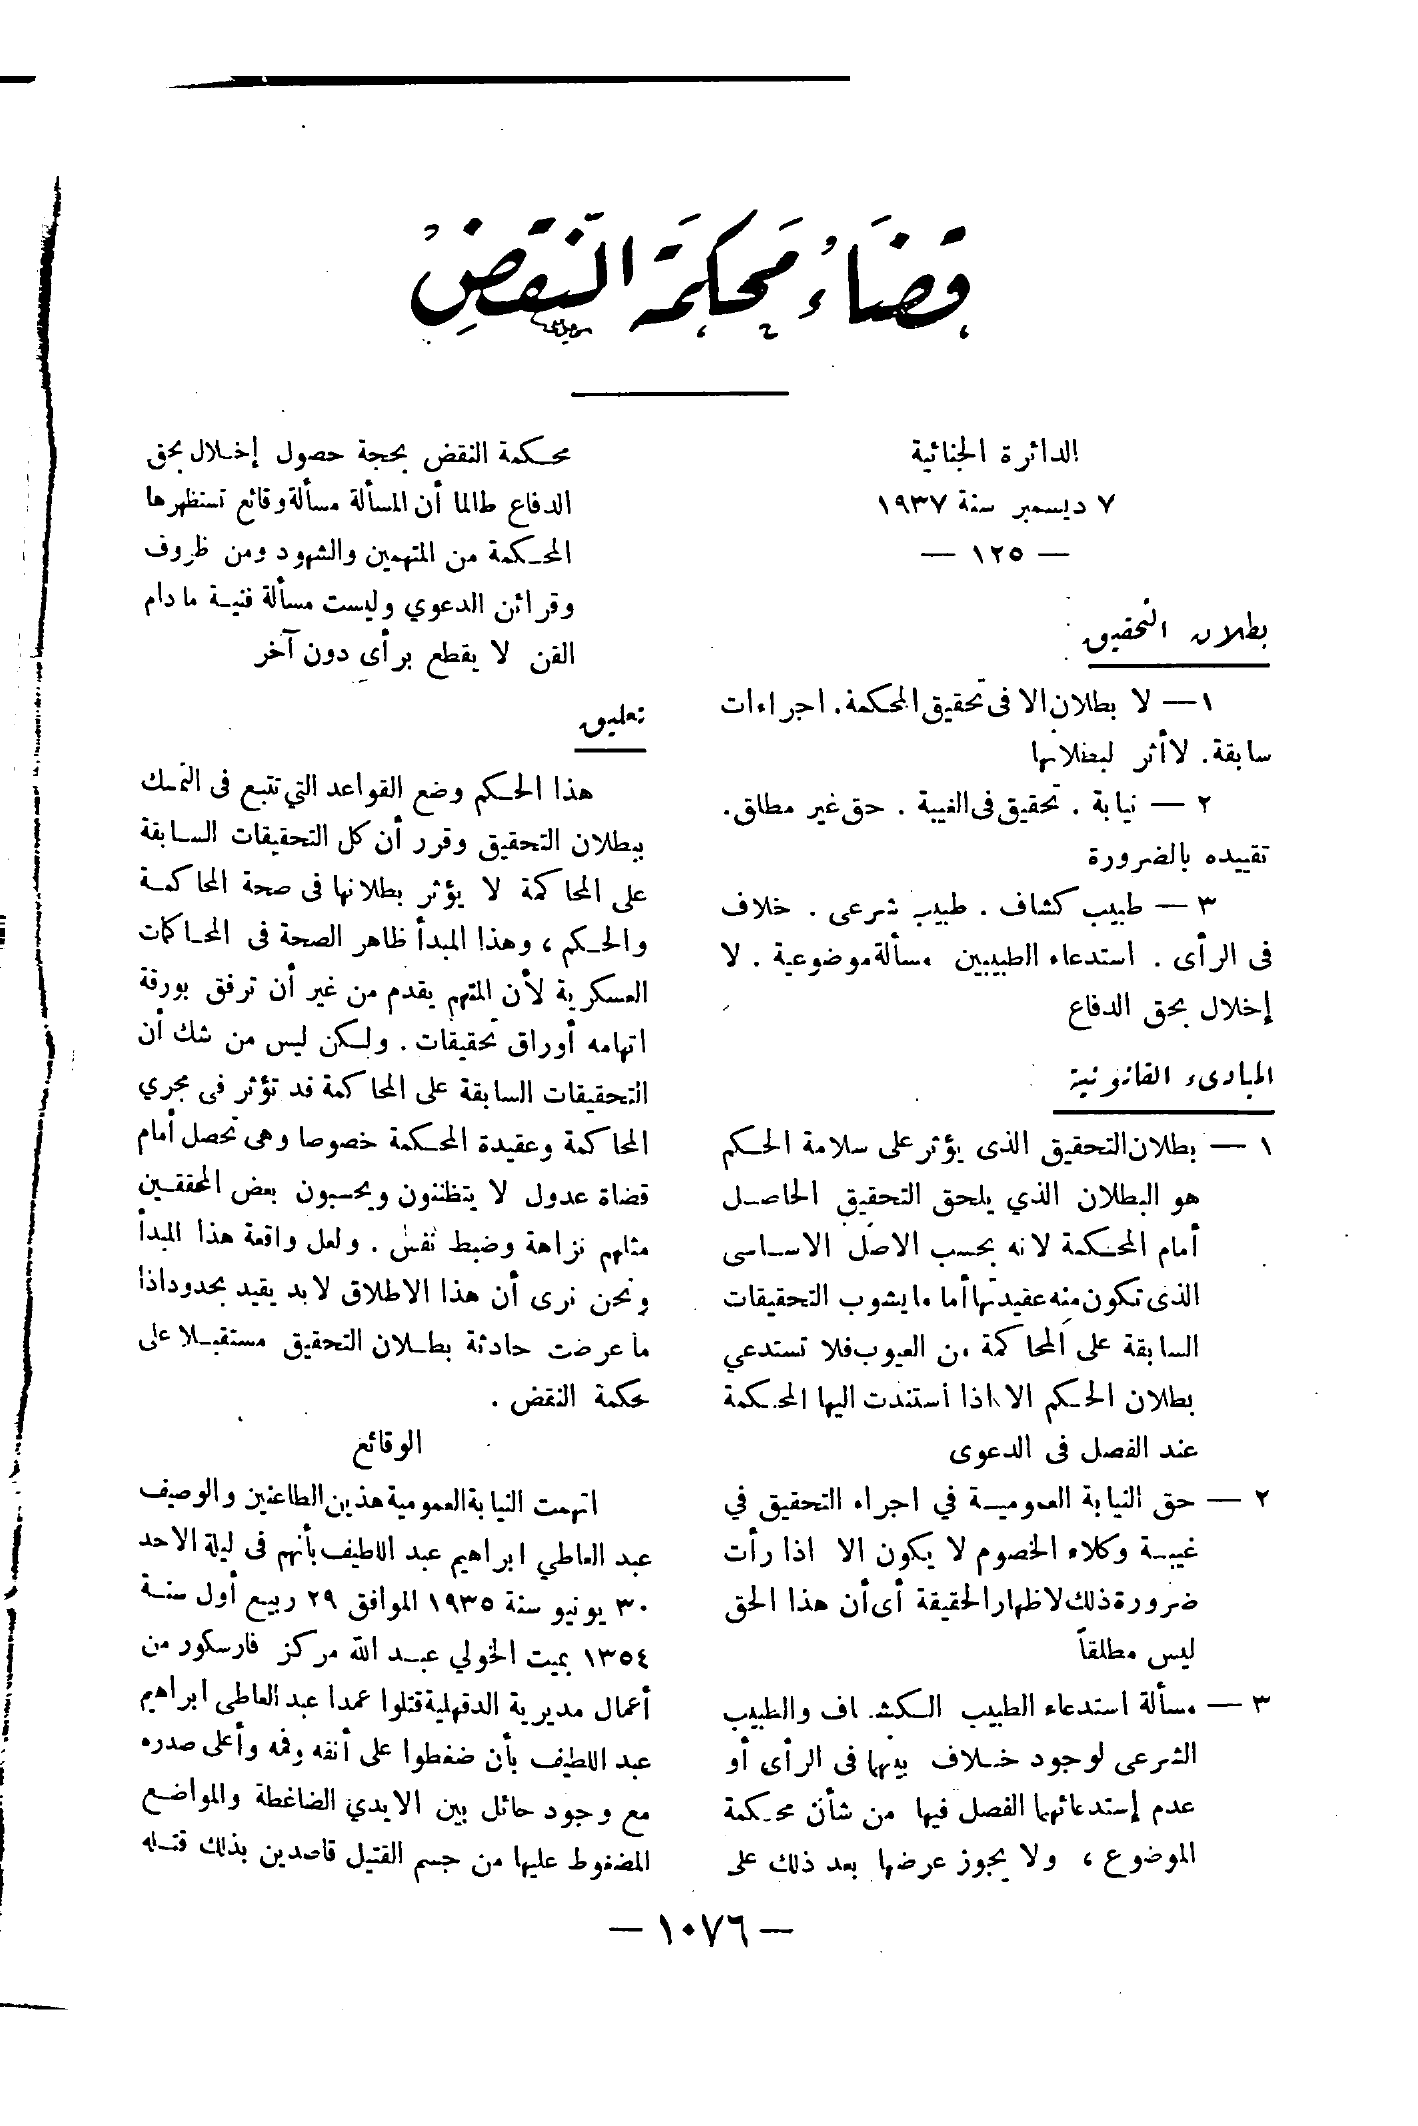 قضاء محكمة النقض
الدائرة الجنائية
٧ ديسمبر سنة ١٩٣٧
— ١٢٥ —
بطلان التحقيق
١ — لا بطلان الا فى تحقيق المحكمة. اجراءات
سابقة. لا أثر لبطلانها
٢ — نيابة . تحقيق فى الغيبة . حق غير مطلق.
تقييده بالضرورة
٣ — طبيب كشاف . طبيب شرعى . خلاف
فى الرأى . استدعاء الطبيبين مسألة موضوعية . لا
إخلال بحق الدفاع
المبادىء القانونية
١ — بطلان التحقيق الذى يؤثر على سلامة الحكم
هو البطلان الذي يلحق التحقيق الحاصل
أمام المحكمة لانه بحسب الاصل الاساسى
الذى تكون منه عقيدتها أما ما يشوب التحقيقات
السابقة على المحاكمة من العيوب فلا تستدعي
بطلان الحكم الا اذا أستندت اليها المحكمة
عند الفصل فى الدعوى
٢ — حق النيابة العمومية في اجراء التحقيق في
غيبة وكلاء الخصوم لا يكون الا اذا رأت
ضرورة ذلك لاظهار الحقيقة أى أن هذا الحق
ليس مطلقاً
٣ — مسألة استدعاء الطبيب الكشاف والطبيب
الشرعى لوجود خلاف بينهما فى الرأى أو
عدم إستدعائهما الفصل فيها من شأن محكمة
الموضوع ، ولا يجوز عرضها بعد ذلك على
محكمة النقض بحجة حصول إخلال بحق
الدفاع طالما أن المسألة مسألة وقائع تستظهرها
المحكمة من المتهمين والشهود ومن ظروف
وقرائن الدعوي وليست مسألة فنية ما دام
الفن لا يقطع برأى دون آخر
تعليق
هذا الحكم وضع القواعد التي تتبع فى التمسك
ببطلان التحقيق وقرر أن كل التحقيقات السابقة
على المحاكمة لا يؤثر بطلانها فى صحة المحاكمة
والحكم ، وهذا المبدأ ظاهر الصحة فى المحاكمات
العسكرية لأن المتهم يقدم من غير أن ترفق بورقة
اتهامه أوراق تحقيقات . ولكن ليس من شك أن
التحقيقات السابقة على المحاكمة قد تؤثر فى مجري
المحاكمة وعقيدة المحكمة خصوصا وهى تحصل أمام
قضاة عدول لا يتظننون ويحسبون بعض المحققين
مثلهم نزاهة وضبط نفس . ولعل واقعة هذا المبدأ
ونحن نرى أن هذا الاطلاق لابد يقيد بحدود اذا
ما عرضت حادثة بطلان التحقيق مستقبلا على
محكمة النقض .
الوقائع
اتهمت النيابة العمومية هذين الطاعنين والوصيف
عبد العاطي ابراهيم عبد اللطيف بأنهم فى ليلة الاحد
٣٠ يونيو سنة ١٩٣٥ الموافق ٢٩ ربيع أول سنة
١٣٥٤ بميت الخولي عبد الله مركز فارسكور من
أعمال مديرية الدقهلية قتلوا عمدا عبد العاطى ابراهيم
عبد اللطيف بأن ضغطوا على أنفه وفمه وأعلى صدره
مع وجود حائل بين الايدي الضاغطة والمواضع
المضغوط عليها من جسم القتيل قاصدين بذلك قتله
— ١٠٧٦ —